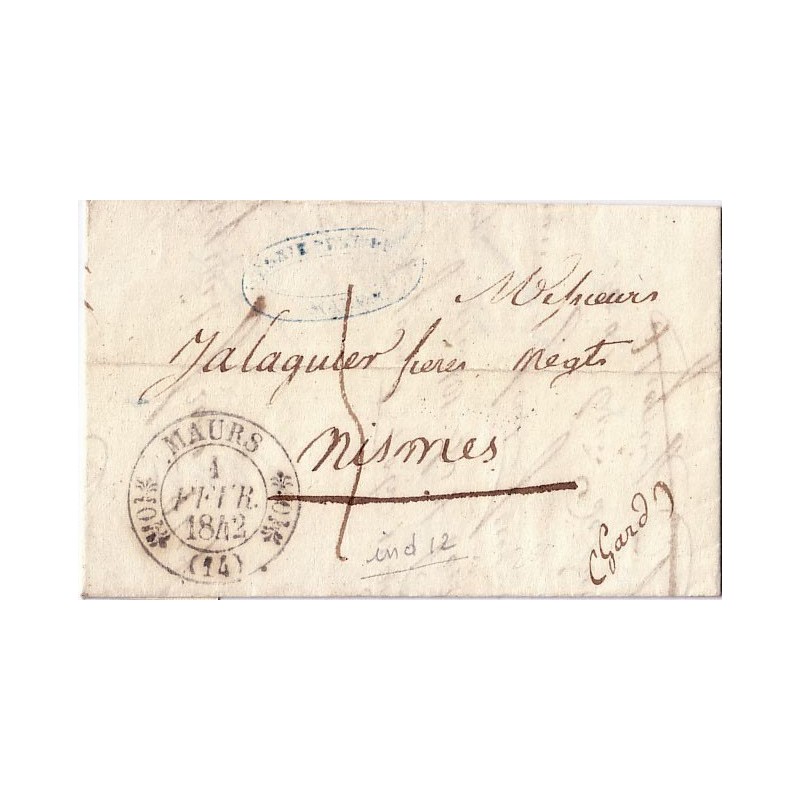 Messieurs
Jalaguier frères Negts
Nismes
(Gard)
MAURS
1
FEVR.
1842
(14)
ind 12